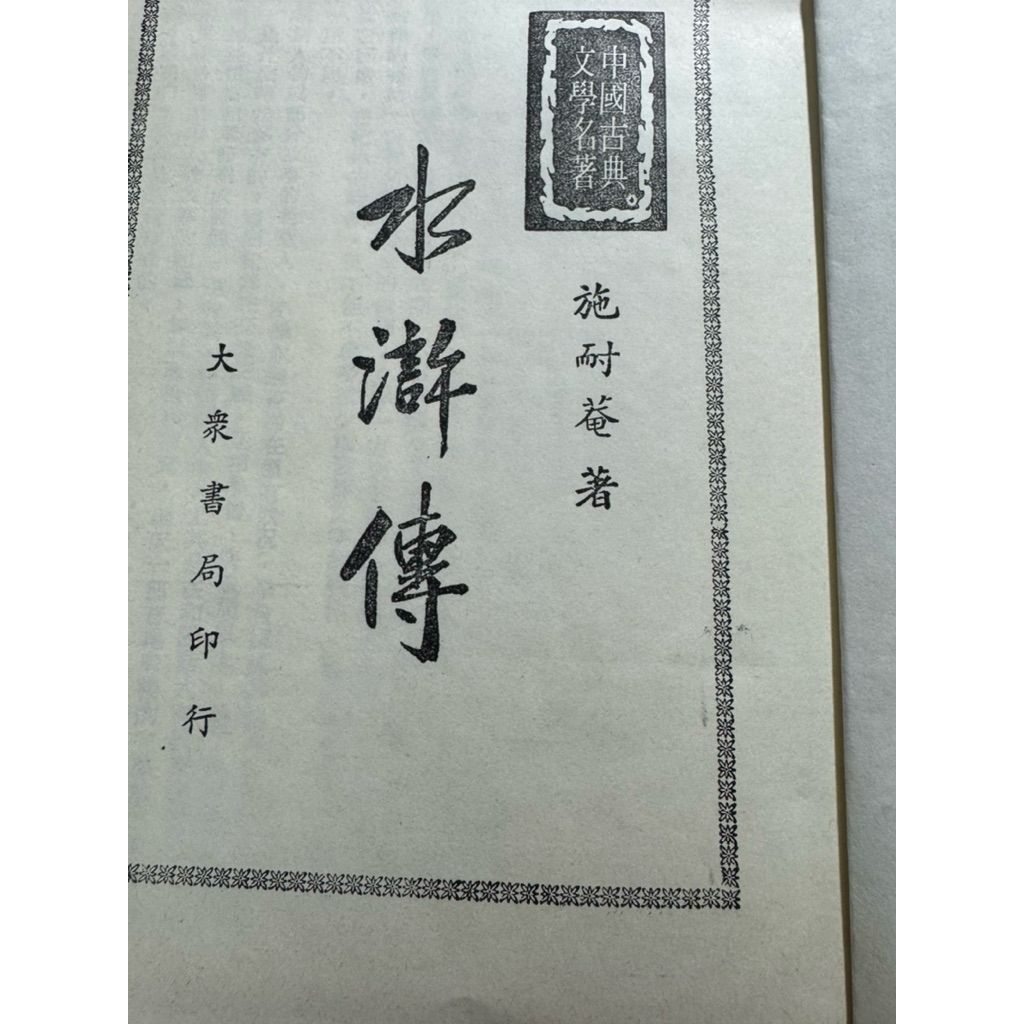 中國古典
文學名著
施耐菴著
水滸傳
大衆書局印行